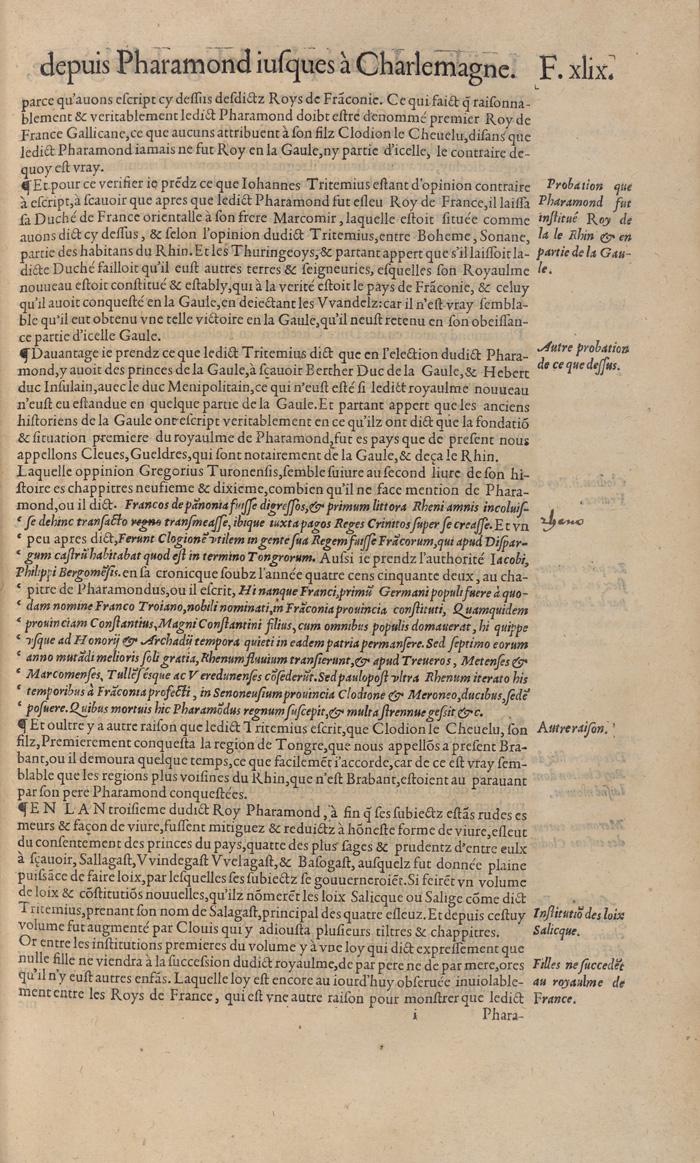 depuis Pharamond iuſques à Charlemagne. F. xlix.
parce qu'auons eſcript cy deſſus deſdictz Roys de Frãconie. Ce qui faict q̃ raiſonna-
blement & veritablement ledict Pharamond doibt eſtre denommé premier Roy de
France Gallicane, ce que aucuns attribuent à ſon filz Clodion le Cheuelu, diſans que
ledict Pharamond iamais ne fut Roy en la Gaule, ny partie d'icelle, le contraire de-
quoy eſt vray.
¶Et pour ce verifier ie prẽdz ce que Iohannes Tritemius eſtant d'opinion contraire
à eſcript, à ſcauoir que apres que ledict Pharamond fut eſleu Roy de France, il laiſſa
ſa Duché de France orientalle à ſon frere Marcomir, laquelle eſtoit ſituée comme
auons dict cy deſſus, & ſelon l'opinion dudict Tritemius, entre Boheme, Sonane,
partie des habitans du Rhin. Et les Thuringeoys, & partant appert que s'il laiſſoit la-
dicte Duché failloit qu'il euſt autres terres & ſeigneuries, eſquelles ſon Royaulme
nouueau eſtoit conſtitué & eſtably, qui à la verité eſtoit le pays de Frãconie, & celuy
qu'il auoit conqueſté en la Gaule, en deiectant les Vvandelz: car il n'eſt vray ſembla-
ble qu'il eut obtenu vne telle victoire en la Gaule, qu'il neuſt retenu en ſon obeiſſan-
ce partie d'icelle Gaule.
Probation que
Pharamond fut
inſtitué Roy de
la le Rhin & en
partie de la Gau-
le.
¶Dauantage ie prendz ce que ledict Tritemius dict que en l'election dudict Phara-
mond, y auoit des princes de la Gaule, à ſçauoir Berther Duc de la Gaule, & Hebert
duc Inſulain, auec le duc Menipolitain, ce qui n'euſt eſté ſi ledict royaulme nouueau
n'euſt eu eſtandue en quelque partie de la Gaule. Et partant appert que les anciens
hiſtoriens de la Gaule ont eſcript veritablement en ce qu'ilz ont dict que la fondatiõ
& ſituation premiere du royaulme de Pharamond, fut es pays que de preſent nous
appellons Cleues, Gueldres, qui ſont notairement de la Gaule, & deça le Rhin.
Autre probation
de ce que deſſus.
Laquelle oppinion Gregorius Turonenſis, ſemble ſuiure au ſecond liure de ſon hi-
ſtoire es chappitres neufieme & dixieme, combien qu'il ne face mention de Phara-
mond, ou il dict. Francos de pãnonia fuiſſe digreſſos, & primum littora Rheni amnis incoluiſ-
ſe dehinc tranſacto regno tranſmeaſſe, ibique iuxta pagos Reges Crinitos ſuper ſe creaſſe. Et vn
rheno
peu apres dict, Ferunt Clogionẽ vtilem in gente ſua Regem fuiſſe Frãcorum, qui apud Diſpar-
gum caſtrũ habitabat quod eſt in termino Tongrorum. Auſſi ie prendz l'authorité Iacobi,
Philippi Bergomẽſis. en ſa cronicque ſoubz l'année quatre cens cinquante deux, au cha-
pitre de Pharamondus, ou il eſcrit, Hi nanque Franci, primũ Germani populi fuere à quo-
dam nomine Franco Troiano, nobili nominati, in Frãconia prouincia conſtituti, Quamquidem
prouinciam Conſtantius, Magni Conſtantini filius, cum omnibus populis domauerat, hi quippe
vſque ad Honorij & Archadij tempora quieti in eadem patria permanſere. Sed ſeptimo eorum
anno mutãdi melioris ſoli gratia, Rhenum fluuium tranſierunt, & apud Treueros, Metenſes &
Marcomenſes, Tullẽſesque ac Veredunenſes cõſederũt. Sed paulopoſt vltra Rhenum iterato his
temporibus à Frãconia profecti, in Senoneuſium prouincia Clodione & Meroneo, ducibus, ſedẽ
poſuere. Quibus mortuis hic Pharamõdus regnum ſuſcepit, & multa ſtrennue geſsit &c.
¶Et oultre y a autre raiſon que ledict Tritemius eſcrit, que Clodion le Cheuelu, ſon
filz, Premierement conqueſta la region de Tongre, que nous appellõs a preſent Bra-
bant, ou il demoura quelque temps, ce que facilemẽt i'accorde, car de ce eſt vray ſem-
blable que les regions plus voiſines du Rhin, que n'eſt Brabant, eſtoient au parauant
par ſon pere Pharamond conqueſtées.
Autre raiſon.
¶EN LAN troiſieme dudict Roy Pharamond, à fin q̃ ſes ſubiectz eſtãs rudes es
meurs & façon de viure, fuſſent mitiguez & reduictz à hõneſte forme de viure, eſleut
du conſentement des princes du pays, quatre des plus ſages & prudentz d'entre eulx
à ſçauoir, Sallagaſt, Vvindegaſt Vvelagaſt, & Baſogaſt, auſquelz fut donnée plaine
puiſsãce de faire loix, par leſquelles ſes ſubiectz ſe gouuerneroiẽt. Si feirẽt vn volume
de loix & cõſtitutiõs nouuelles, qu'ilz nõmerẽt les loix Salicque ou Salige cõme dict
Tritemius, prenant ſon nom de Salagaſt, principal des quatre eſleuz. Et depuis ceſtuy
volume fut augmenté par Clouis qui y adiouſta pluſieurs tiltres & chappitres.
Inſtitutiõ des loix
Salicque.
Or entre les inſtitutions premieres du volume y à vne loy qui dict expreſſement que
nulle fille ne viendra à la ſucceſsion dudict royaulme, de par pere ne de par mere, ores
qu'il n'y euſt autres enfãs. Laquelle loy eſt encore au iourd'huy obſeruée inuiolable-
ment entre les Roys de France, qui eſt vne autre raiſon pour monſtrer que ledict
Filles ne ſuccedẽt
au royaulme de
France.
i Phara-